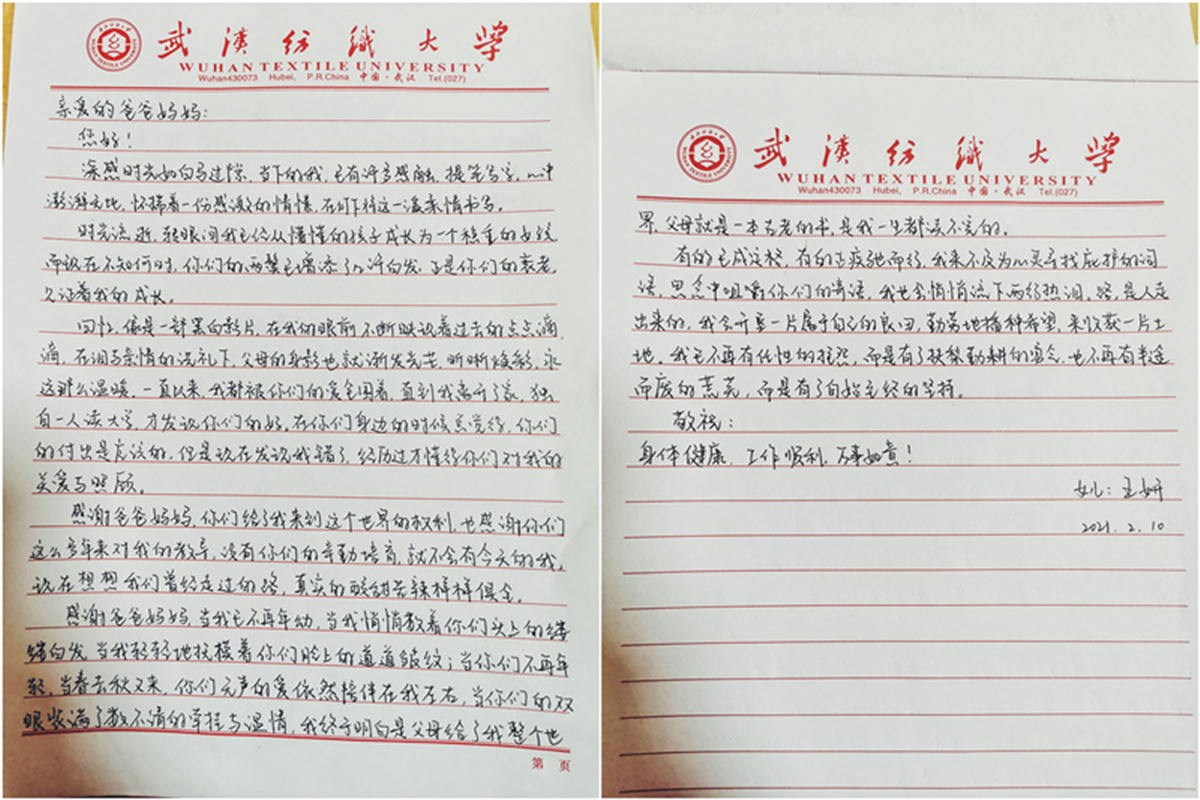 武汉纺织大学
WUHAN TEXTILE UNIVERSITY
Wuhan430073 Hubei, P.R.China 中国·武汉 Tel.(027)
亲爱的爸爸妈妈：
您好！
深感时光如白马过隙，当下的我，已有许多感触，提笔写字，心中
澎湃无地，怀揣着一份感激的情愫，在灯下将这一缕亲情书写。
时光流逝，转眼间我已经从懵懂的孩子成长为一个稳重的女孩
而现在不知何时，你们的两鬓已增添了几许白发，正是你们的衰老，
见证着我的成长。
回忆，像是一部黑白影片，在我的眼前不断映现着过去的点点滴
滴，在泪与亲情的洗礼下，父母的身影也就渐发光芒，渐渐焕彩，永
远那么温暖。一直以来，我都被你们的爱包围着，直到我离开了家，独
自一人读大学，才发现你们的好。在你们身边的时候总觉得，你们
的付出是应该的，但是现在发现我错了，经历过才懂得你们对我的
关爱与照顾。
感谢爸爸妈妈，你们给了我来到这个世界的权利，也感谢你们
这么多年来对我的教导，没有你们的辛勤培育，就不会有今天的我。
现在想想我们曾经走过的路，真实的酸甜苦辣样样俱全。
感谢爸爸妈妈，当我已不再年幼，当我悄悄数着你们头上的缕
缕白发，当我轻轻地抚摸着你们脸上的道道皱纹；当你们不再年
轻，当春去秋又来，你们无声的爱依然陪伴在我左右，当你们的双
眼装满了数不清的牵挂与温情，我终于明白是父母给了我整个世
第 页
武汉纺织大学
WUHAN TEXTILE UNIVERSITY
Wuhan430073 Hubei, P.R.China 中国·武汉 Tel.(027)
界，父母就是一本古老的书，是我一生都读不完的。
有的已成定格，有的正疾驰而行，我来不及为心灵寻找庇护的词
语，思念中咀嚼你们的寄语，我也会悄悄流下两行热泪。路，是人走
出来的，我会开垦一片属于自己的良田，勤劳地播种希望，来收获一片土
地。我已不再有任性的抱怨，而是有了扶犁勤耕的信念，也不再有半途
而废的荒芜，而是有了自始至终的坚持。
敬祝：
身体健康，工作顺利，万事如意！
女儿：王妍
2021.2.10